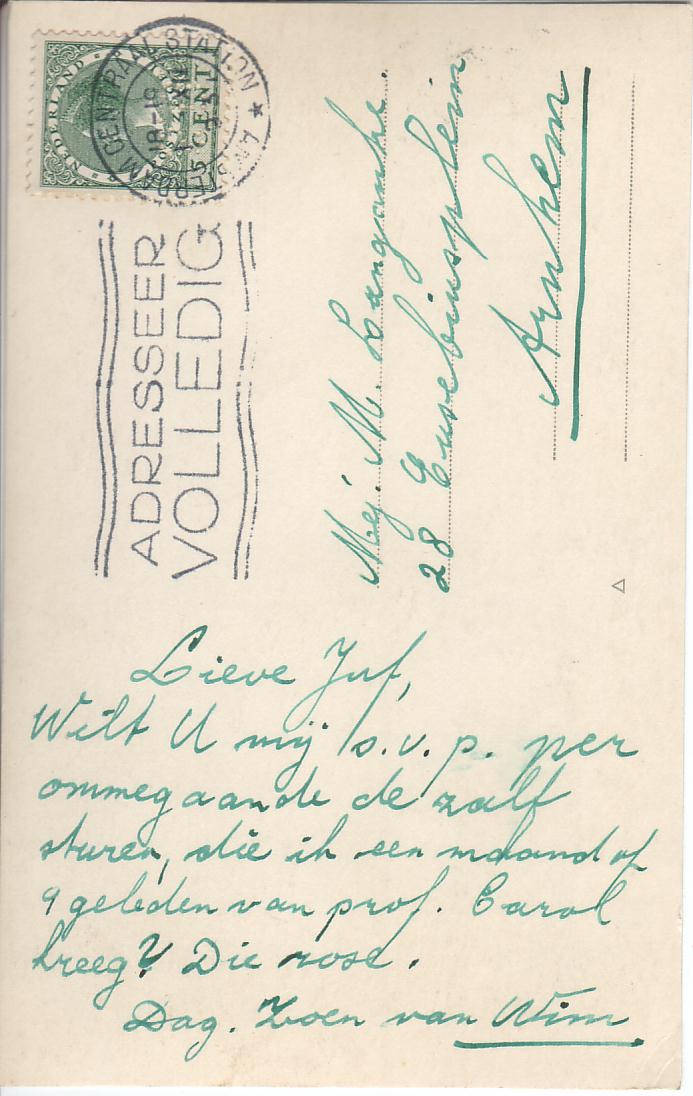 NEDERLAND
POSTZEGEL
5 CENT
AMSTERDAM CENTRAAL STATION *
18-19
ADRESSEER
VOLLEDIG
Mej. M. Langanke.
28 Eusebiusplein
Arnhem
Lieve Juf,
Wilt U mij s.v.p. per
ommegaande de zalf
sturen, die ik een maand of
9 geleden van prof. Carol
kreeg? Die rose.
Dag. Zoen van Wim